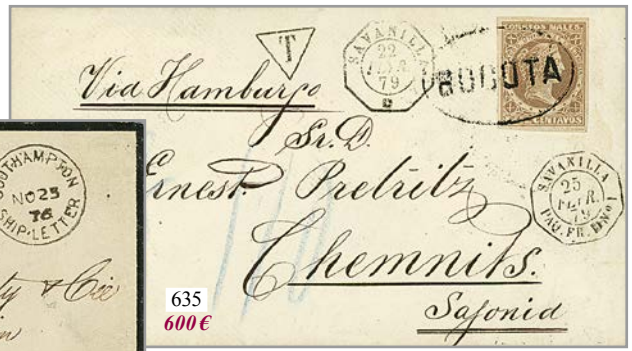 T
SAVANILLA
22
FEVR.
79
CORREOS NALES.
BOGOTA
CENTAVOS
Via Hamburgo
Sr. D.
Ernest Pretritz
SAVANILLA
25
FEVR.
79
PAQ. FR. D No 1
Chemnits.
Sajonia
SOUTHAMPTON
NO 25
76
SHIP-LETTER
& Cie
635
600 €